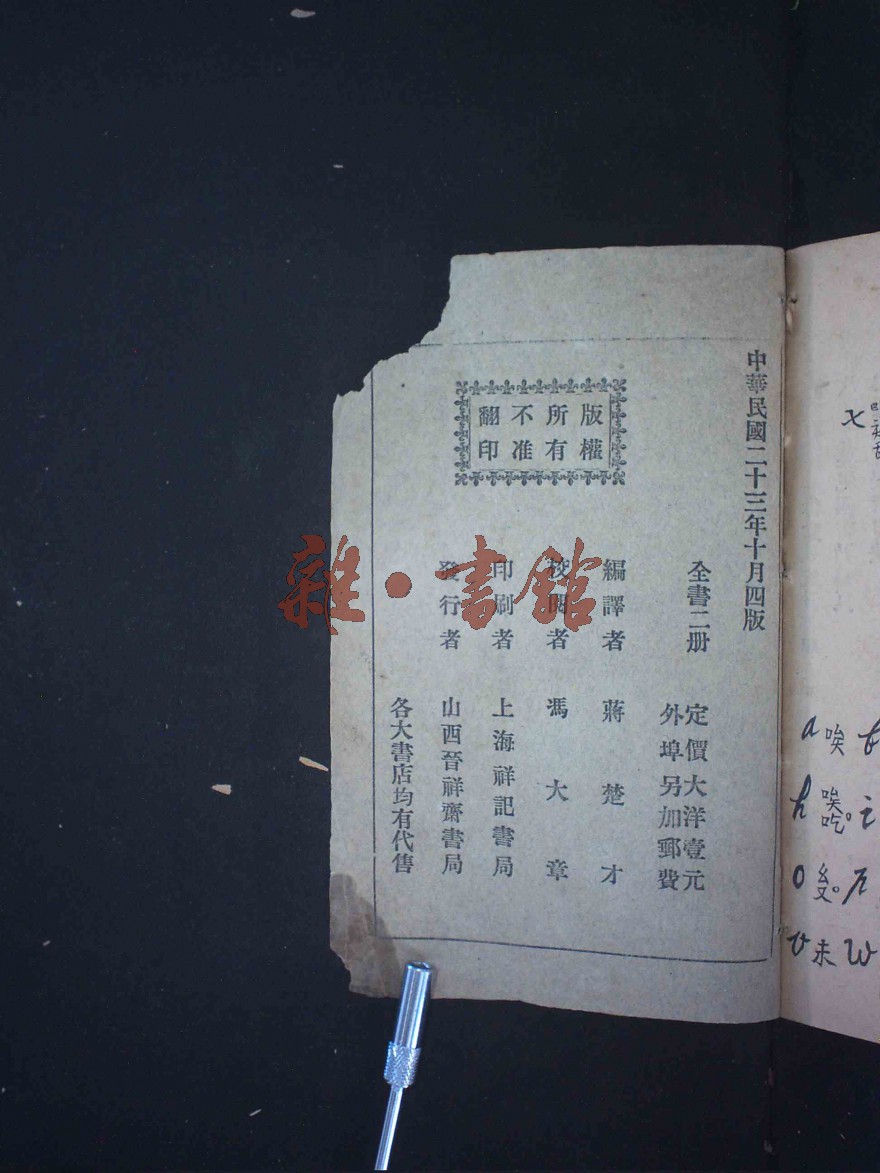 中華民國二十三年十月四版
版權所有
不准翻印
全書二册
定價大洋壹元
外埠另加郵費
編譯者 蔣楚才
校閱者 馮大章
印刷者 上海祥記書局
發行者 山西晉祥齋書局
各大書店均有代售
雜·書館
a 唉
h 唉吃。 i
o
v 未 w